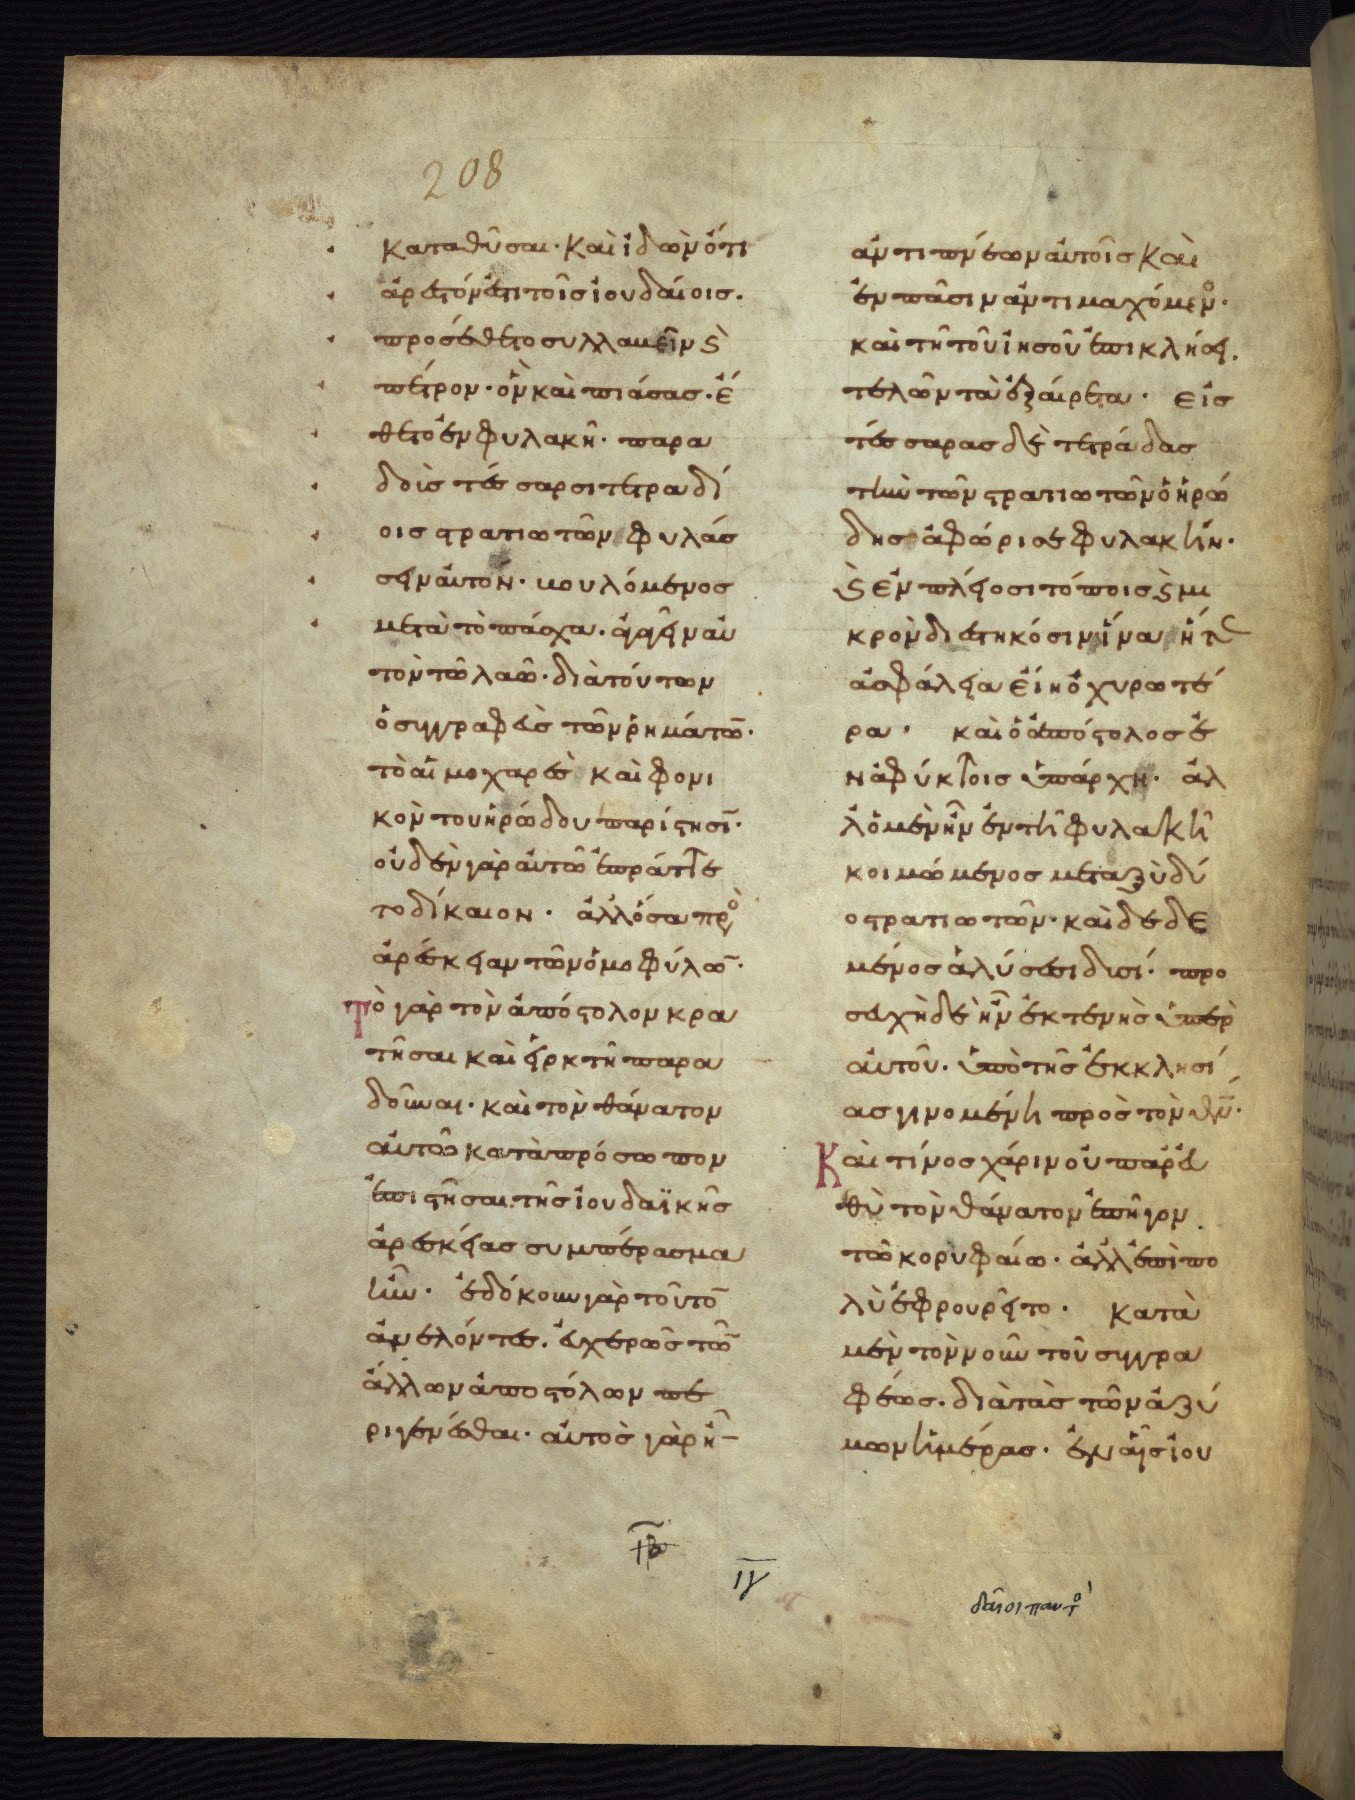 208
καταθῦσαι· Καὶ ἰδὼν ὅτι
ἀρεστόν ἐστι τοῖς ἰουδαίοις·
προσέθετο συλλαβεῖν ϗ
πέτρον· ὃν καὶ πιάσας· ἔ
θετο ἐν φυλακῆ· παρα
δοὺς τέσσαρσι τετραδί
οις στρατιωτῶν φυλάσ
σειν αὐτον· βουλόμενος
μετὰ τὸ πάσχα· ἀγαγεῖν αὐ
τὸν τῶ λαῶ· διὰ τούτων
ὁ συγγραφεὺς τῶν ῥημάτω̅·
τὸ αἱμοχαρὲς καὶ φονι
κὸν του ἡρώδου παρίστησι̅·
οὐδὲν γὰρ αὐτῶ ἐπράττε
το δίκαιον· ἀλλ' ὅσα πρὸ
ἀρέσκειαν τῶν ὁμοφύλω̅·
Τὸ γὰρ τὸν ἀπόστολον κρα
τῆσαι καὶ εἱρκτῆ παρα
δοῦναι· καὶ τὸν θάνατον
αὐτοῦ κατὰ πρόσωπον
ἐπιστῆσαι τῆς ἰουδαϊκῆς
ἀρεσκείας συμπέρασμα
ἦν· ἐδόκουν γὰρ τοῦτο̅
ἀνελόντες· εὐχερῶς τῶ̅
ἄλλων ἀποστόλων πε
ριγενέσθαι· αὐτὸς γὰρ ἦ̅
ἀντιπνέων αὐτοῖς Καὶ
ἐν πᾶσιν ἀντιμαχόμενο·
καὶ τῆ τοῦ ἰησοῦ ἐπικλήσει·
τελῶν τὰ ἐξαίρετα· εἰς
τέσσαρας δὲ τετράδας
τὴν τῶν στρατιωτῶν ὁ ἡρώ
δης ἀφώρισε φυλακὴν·
ϗ ἐν πλείοσι τόποις ϗ μι
κρὸν διεστηκόσιν ἵνα ἥ τε
ἀσφάλεια εἴη ὀχυρωτέ
ρα· καὶ ὁ ἀπόστολος ἐ
ν ἀφύκτοις ὑπάρχη· ἀλ
λ' ὁ μὲν ἦν ἐν τῆ φυλακῆ
κοιμώμενος μεταξὺ δύ
ο στρατιωτῶν· καὶ δεδε
μένος ἁλύσεσι δυσί· προ
σευχὴ δὲ ἦν ἐκτενὴς ὑπὲρ
αὐτοῦ· ὑπὸ τῆς ἐκκλησί
ας γινομένη πρὸς τὸν θν̅·
Καὶ τίνος χάριν οὐ παρευ
θὺ τὸν θάνατον ἐπῆγον
τῶ κορυφαίω· ἀλλ' ἐπὶ πο
λὺ ἐφρουρεῖτο· Κατὰ
μὲν τὸν νοῦν τοῦ συγγρα
φέως· διὰ τὰς τῶν ἀζύ
μων ἡμέρας· ἐν αἷς ἰου
ιβ̅
ιγ̅
δαῖοι παντ